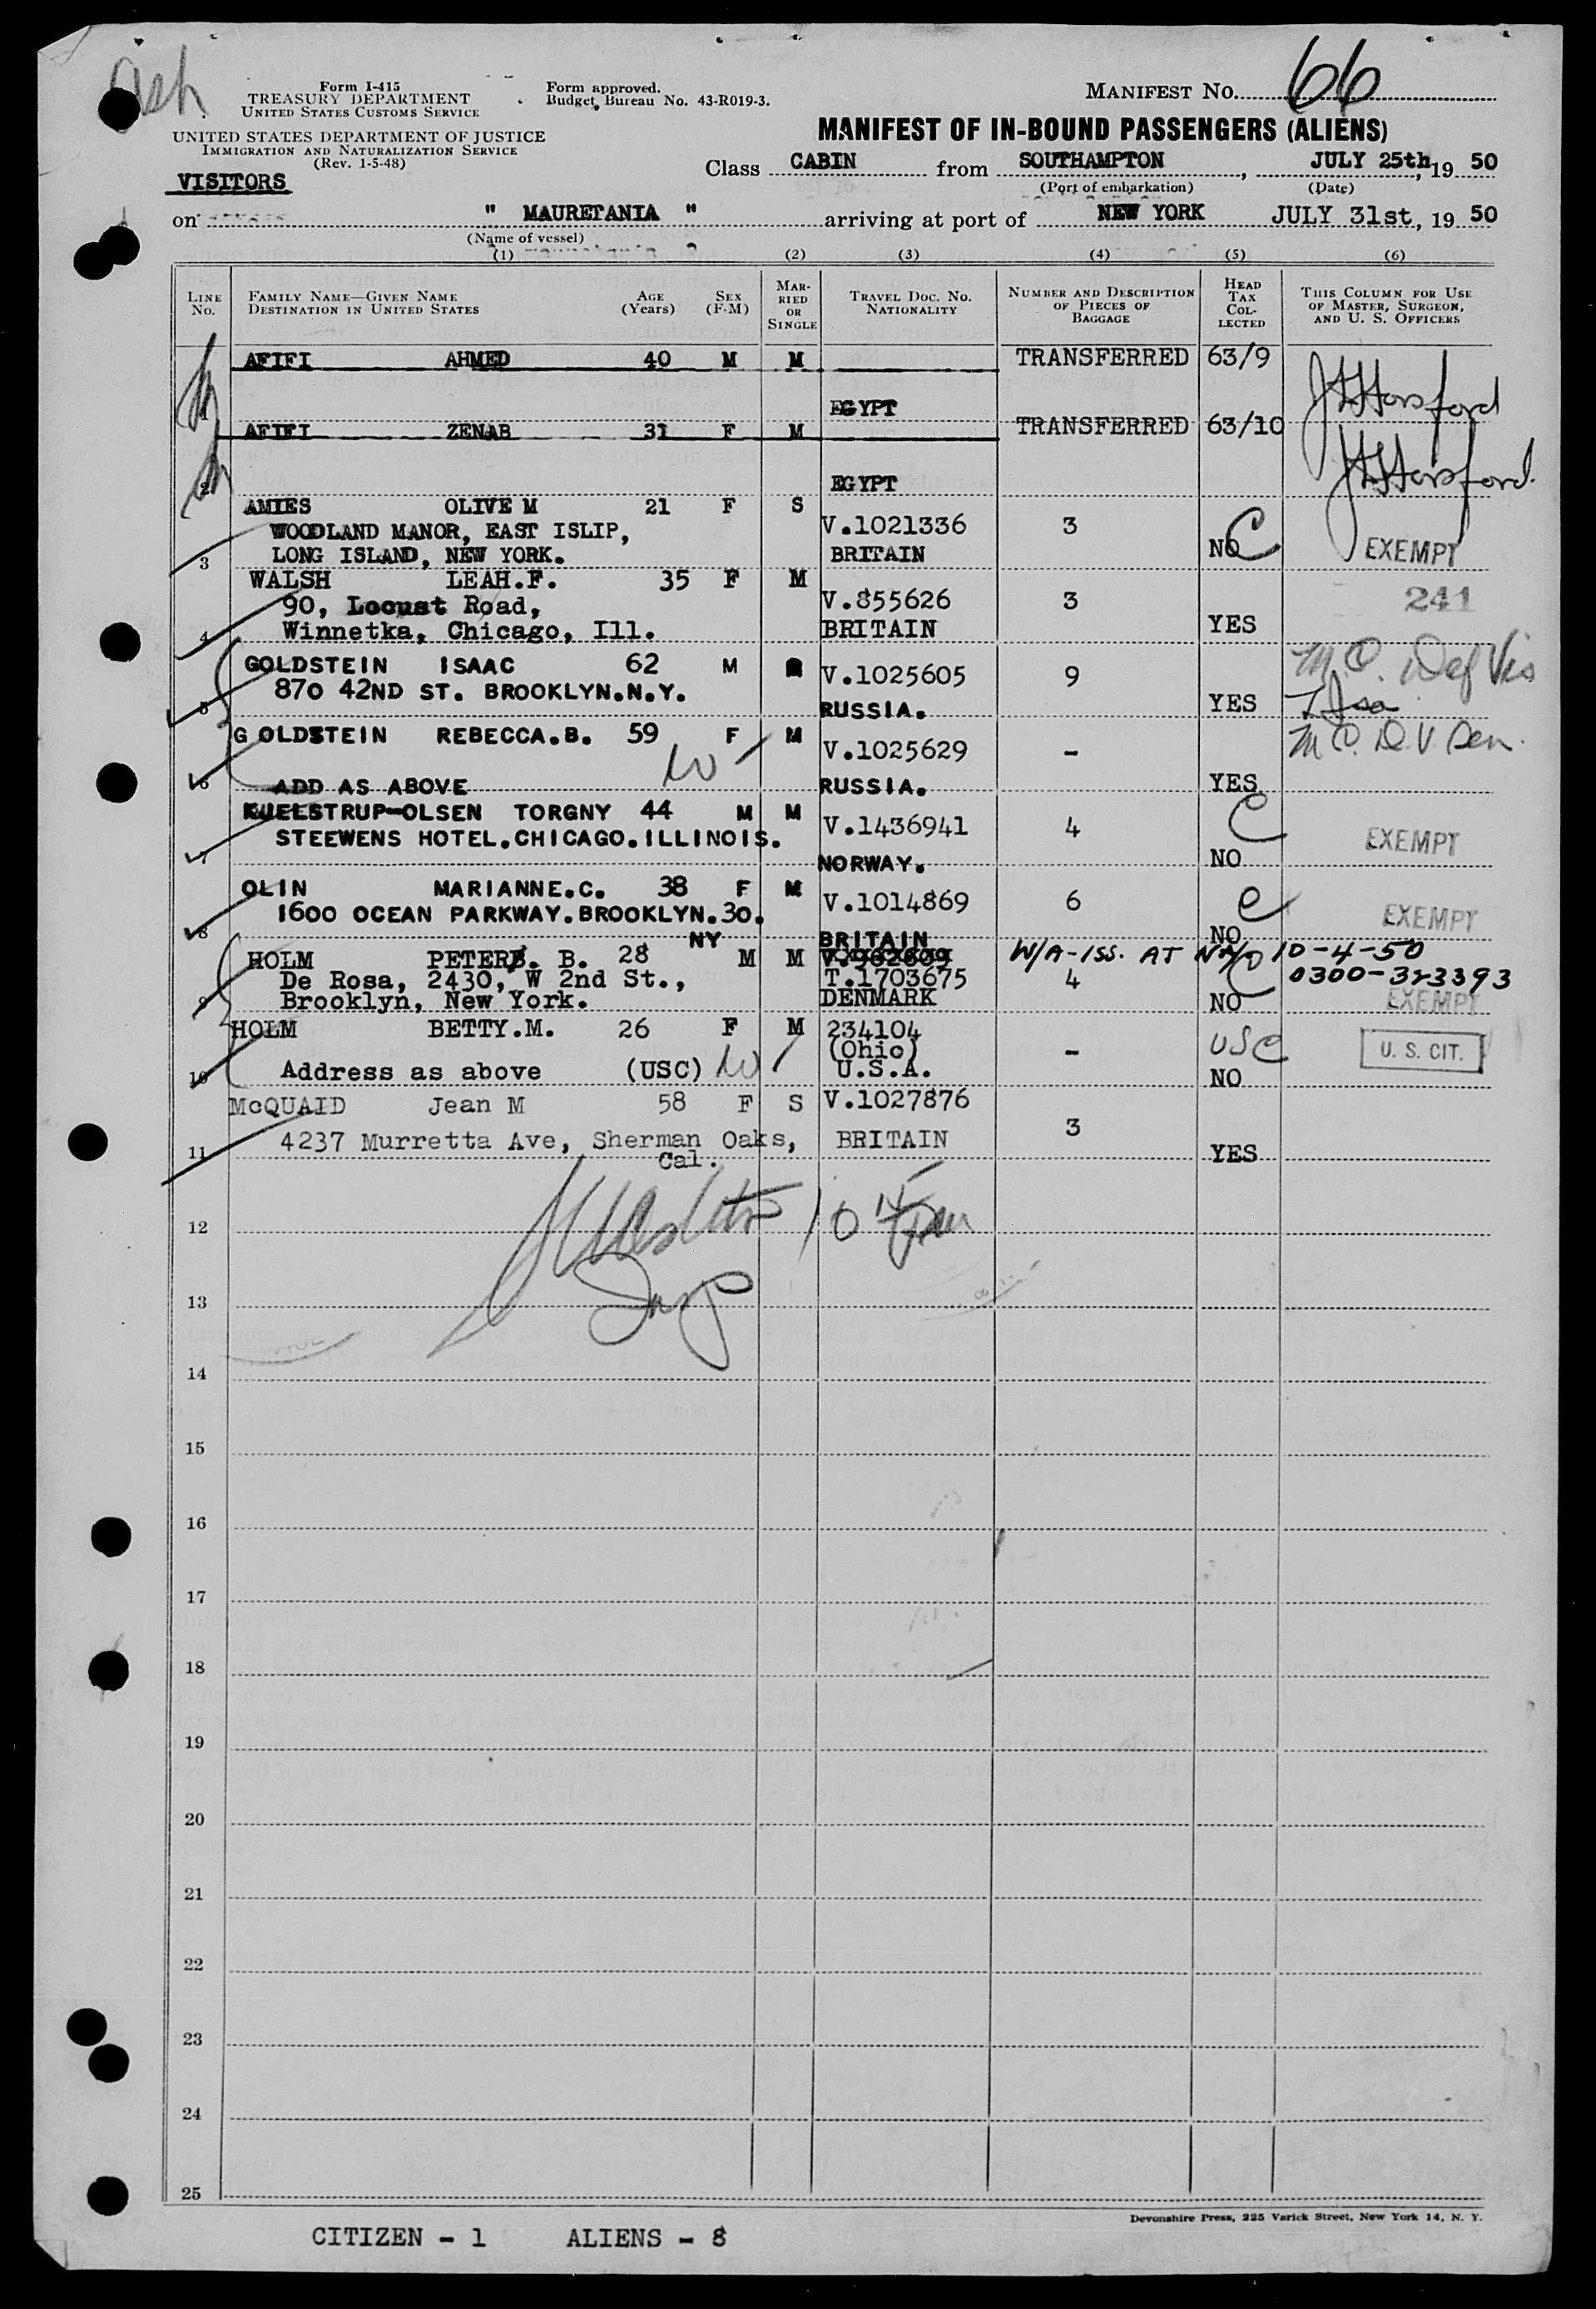 Ash
Form I-415
TREASURY DEPARTMENT
UNITED STATES CUSTOMS SERVICE
Form approved.
Budget Bureau No. 43-R019-3.
MANIFEST NO. 66
UNITED STATES DEPARTMENT OF JUSTICE
IMMIGRATION AND NATURALIZATION SERVICE
(Rev. 1-5-48)
MANIFEST OF IN-BOUND PASSENGERS (ALIENS)
VISITORS
Class CABIN from SOUTHAMPTON, JULY 25th, 19 50
(Port of embarkation) (Date)
on " MAURETANIA " arriving at port of NEW YORK JULY 31st, 19 50
(Name of vessel)
(1) (2) (3) (4) (5) (6)
LINE No. FAMILY NAME—GIVEN NAME DESTINATION IN UNITED STATES AGE (Years) SEX (F-M) MARRIED OR SINGLE TRAVEL DOC. NO. NATIONALITY NUMBER AND DESCRIPTION OF PIECES OF BAGGAGE HEAD TAX COLLECTED THIS COLUMN FOR USE OF MASTER, SURGEON, AND U. S. OFFICERS
AFIFI AHMED 40 M M TRANSFERRED 63/9
1 EGYPT
AFIFI ZENAB 31 F M TRANSFERRED 63/10
2 EGYPT
AMIES OLIVE M 21 F S
WOODLAND MANOR, EAST ISLIP, V.1021336 3
3 LONG ISLAND, NEW YORK. BRITAIN NO C EXEMPT
WALSH LEAH.F. 35 F M
90, Locust Road, V.855626 3 241
4 Winnetka, Chicago, Ill. BRITAIN YES
GOLDSTEIN ISAAC 62 M V.1025605 9 M.O. Def Vis
870 42ND ST. BROOKLYN.N.Y.
5 RUSSIA. YES
GOLDSTEIN REBECCA.B. 59 F M V.1025629 -
6 ADD AS ABOVE RUSSIA. YES
KJELSTRUP-OLSEN TORGNY 44 M M V.1436941 4 C EXEMPT
STEEWENS HOTEL.CHICAGO.ILLINOIS.
7 NORWAY. NO
OLIN MARIANNE.C. 38 F M V.1014869 6 C EXEMPT
1600 OCEAN PARKWAY.BROOKLYN.30.
8 NY BRITAIN NO
HOLM PETER. B. 28 M M V.962609 W/A-ISS. AT NYO 10-4-50
De Rosa, 2430, W 2nd St., T.1703675 4 C 0300-323393
9 Brooklyn, New York. DENMARK NO EXEMPT
HOLM BETTY.M. 26 F M 234104
(Ohio) - USC U. S. CIT.
10 Address as above (USC) U.S.A. NO
McQUAID Jean M 58 F S V.1027876
4237 Murretta Ave, Sherman Oaks, BRITAIN 3
11 Cal. YES
12
13
14
15
16
17
18
19
20
21
22
23
24
25
Devonshire Press, 225 Varick Street, New York 14, N. Y.
CITIZEN - 1 ALIENS - 8